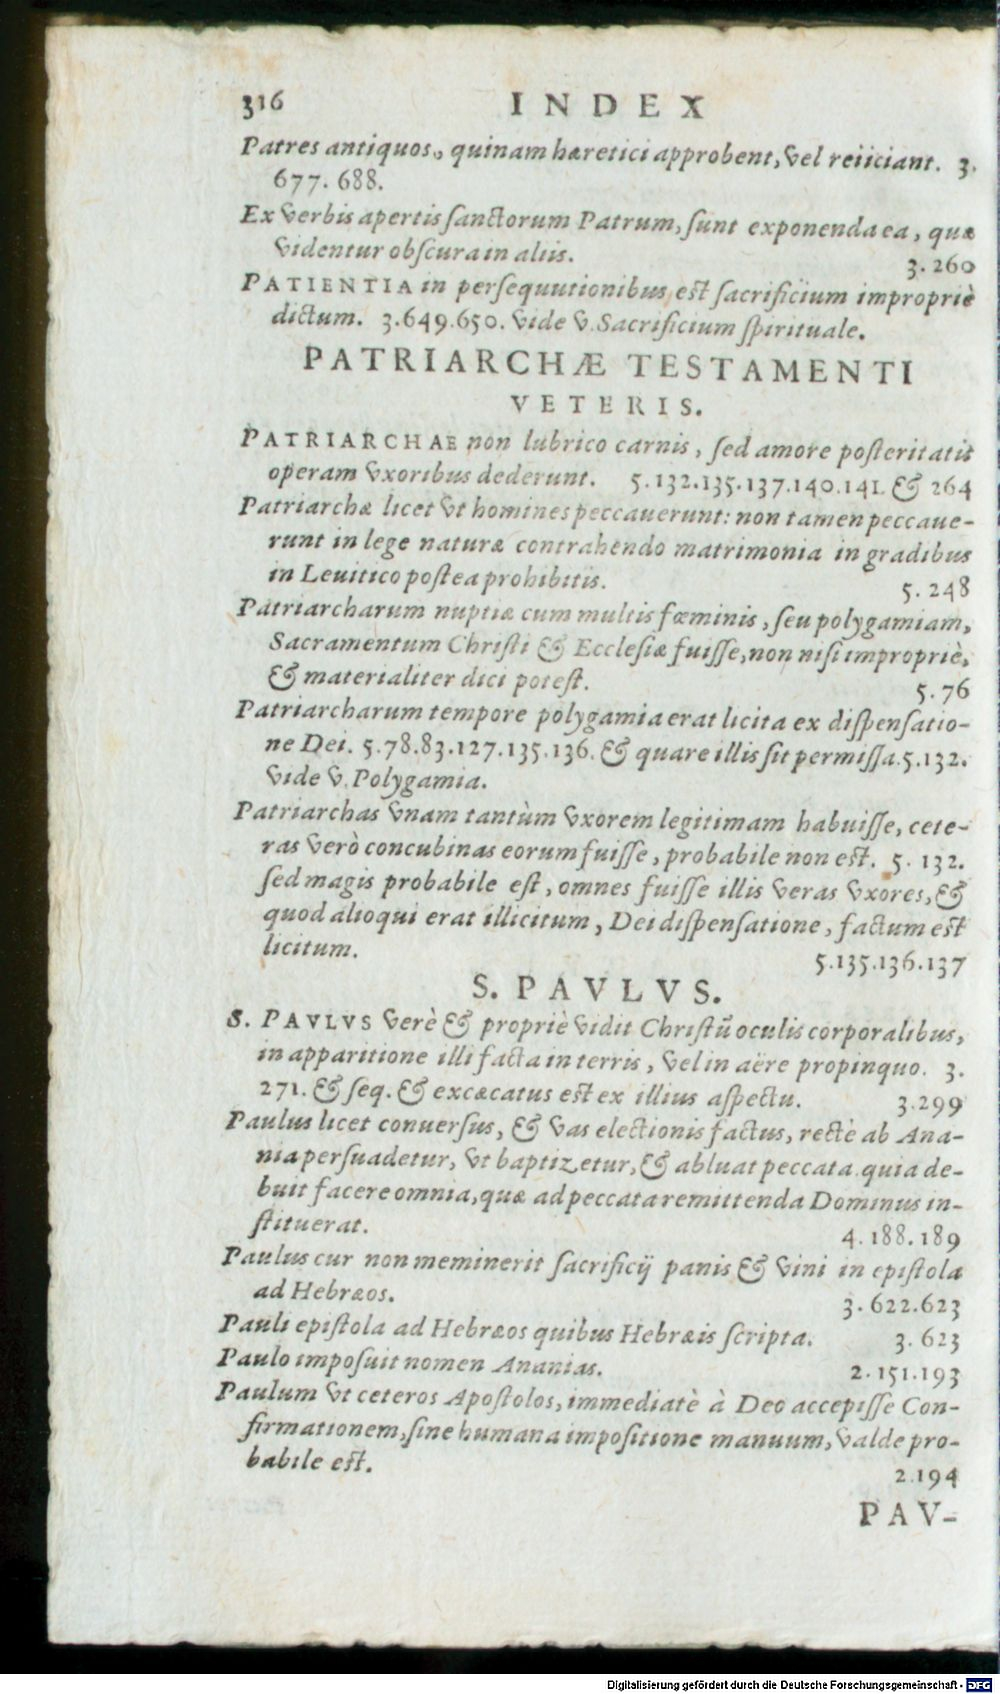 316 INDEX
Patres antiquos, quinam hæretici approbent, vel reiiciant. 3.
677. 688.
Ex verbis apertis ſanctorum Patrum, ſunt exponenda ea, quæ
videntur obſcura in aliis. 3.260
PATIENTIA in perſequutionibus eſt ſacrificium impropriè
dictum. 3.649.650. vide v. Sacrificium ſpirituale.
PATRIARCHÆ TESTAMENTI
VETERIS.
PATRIARCHAE non lubrico carnis, ſed amore poſteritatis
operam vxoribus dederunt. 5.132.135.137.140.141. & 264
Patriarchæ licet vt homines peccauerunt: non tamen peccaue-
runt in lege naturæ contrahendo matrimonia in gradibus
in Leuitico poſtea prohibitis. 5. 248
Patriarcharum nuptiæ cum multis fœminis, ſeu polygamiam,
Sacramentum Chriſti & Eccleſiæ fuiſſe, non niſi impropriè,
& materialiter dici poteſt. 5.76
Patriarcharum tempore polygamia erat licita ex diſpenſatio-
ne Dei. 5.78.83.127.135.136. & quare illis ſit permiſſa. 5.132.
vide v. Polygamia.
Patriarchas vnam tantùm vxorem legitimam habuiſſe, cete-
ras verò concubinas eorum fuiſſe, probabile non eſt. 5. 132.
ſed magis probabile eſt, omnes fuiſſe illis veras vxores, &
quod alioqui erat illicitum, Dei diſpenſatione, factum eſt
licitum. 5.135.136.137
S. PAVLVS.
S. PAVLVS verè & propriè vidit Chriſtũ oculis corporalibus,
in apparitione illi facta in terris, vel in aëre propinquo. 3.
271. & ſeq. & excæcatus eſt ex illius aſpectu. 3.299
Paulus licet conuerſus, & vas electionis factus, rectè ab Ana-
nia perſuadetur, vt baptizetur, & abluat peccata. quia de-
buit facere omnia, quæ ad peccata remittenda Dominus in-
ſtituerat. 4. 188. 189
Paulus cur non meminerit ſacrificij panis & vini in epiſtola
ad Hebræos. 3. 622.623
Pauli epiſtola ad Hebræos quibus Hebræis ſcripta. 3. 623
Paulo impoſuit nomen Ananias. 2. 151.193
Paulum vt ceteros Apoſtolos, immediatè à Deo accepiſſe Con-
firmationem, ſine humana impoſitione manuum, valde pro-
babile eſt. 2.194
PAV-
Digitalisierung gefördert durch die Deutsche Forschungsgemeinschaft - DFG